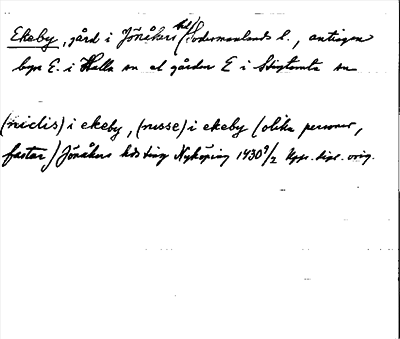 Ekeby, gård i Jönåkers hd/Södermanlands l., antingen
byn E. i Halla sn el gården E i Stigtomta sn
(niclis) i ekeby, (nisse) i ekeby (olika personer,
fastar) Jönåkers hds ting Nyköping 1430 9/2 Upps. dipl. orig.